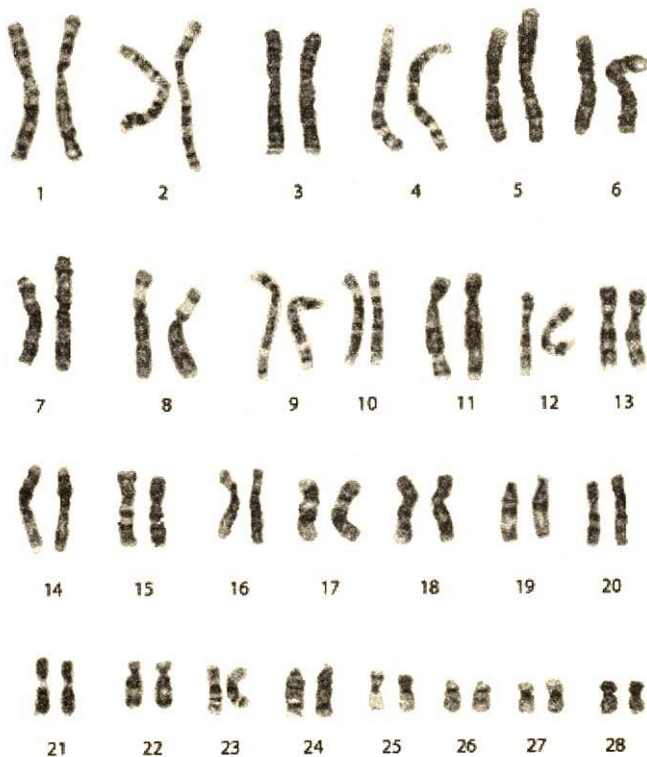 1 2 3 4 5 6
7 8 9 10 11 12 13
14 15 16 17 18 19 20
21 22 23 24 25 26 27 28